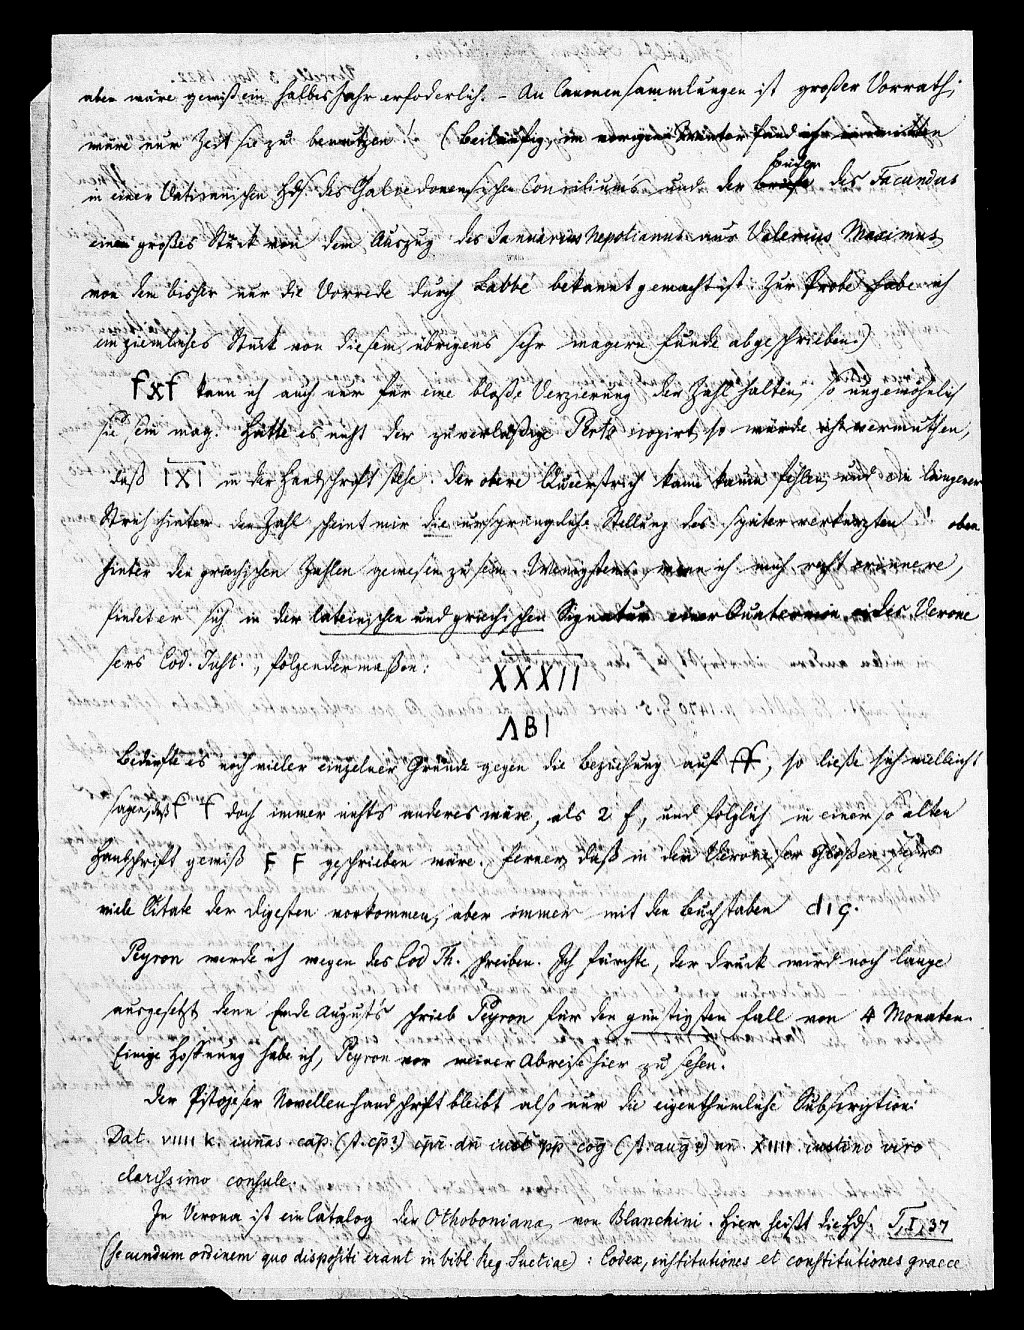 aber wäre gewiß ein halbes Jahr erforderlich. – An Canonensammlungen ist großer Vorrath;
wäre nur Zeit sie zu benutzen! (Beiläufig, im vorigen Winter fand ich inmitten
in einer Vaticanischen Hds. des Chalcedonensischen Conciliums und der Bücher des Facundus
ein großes Stück von dem Auszug des Januarius Nepotianus aus Valerius Maximus,
von dem bisher nur die Vorrede durch Labbe bekannt gemacht ist: zur Probe habe ich
ein ziemliches Stück von diesem übrigens sehr magern Funde abgeschrieben.)
FXF kann ich auch nur für eine bloße Verzierung der Zahl halten, so ungewöhnlich
sie sein mag. Hätte es nicht der zuverläßige Pertz copirt, so würde ich vermuthen,
daß IXI in der Handschrift stehe. Der obere Queerstrich kann kaum fehlen, und ein längerer
Strich hinter der Zahl scheint mir die ursprüngliche Stellung des später verkürzten ' oben
hinter den griechischen Zahlen gewesen zu sein. Wenigstens, wenn ich mich recht erinnere,
findet er sich in der lateinischen und griechischen Signatur einer Quaternion des Verone
sers Cod. Just., folgendermaßen:
XXXII
ΛΒ|
Bedürfte es noch vieler einzelner Gründe gegen die Beziehung auf ff, so ließe sich vielleicht
sagen, daß f f doch immer nichts anderes wäre, als 2 f, und folglich in einer so alten
Handschrift gewiß F F geschrieben wäre. Ferner, daß in den Veroneser Glossen sehr
viele Citate der Digesten vorkommen, aber immer mit den Buchstaben dig.
Peyron werde ich wegen des Cod Th. schreiben. Ich fürchte, der Druck wird noch lange
ausgesetzt denn Ende Augusts schrieb Peyron für den günstigsten Fall von 4 Monaten.
Einige Hoffnung habe ich, Peyron vor meiner Abreise hier zu sehen.
Der Pistojeser Novellenhandschrift bleibt also nur die eigenthümliche Subscription:
Dat. VIIII k. iunias cap. (st. cp?) cpu. dn iust pp cog (st. aug?) an. XIIII. iustino viro
clarissimo consule.
In Verona ist ein Catalog der Othoboniana von Blanchini. Hier heißt die Hds. T, I, 37
(secundum ordinem quo dispositi erant in bibl Reg Suetiae): Codex, institutiones et constitutiones graece